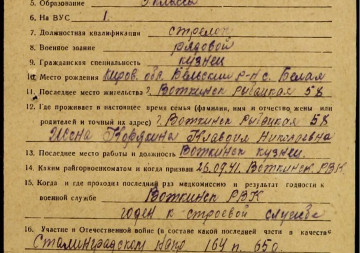 5. Образование классы
6. На ВУС 1.
7. Должностная квалификация стрелок
8. Военное звание рядовой
9. Гражданская специальность кузнец
10. Место рождения Киров. обл. р-н с.
11. Последнее место жительства г. Воткинск Рыбацкая 58
12. Где проживает в настоящее время семья (фамилия, имя и отчество жены или
родителей и точный их адрес) г. Воткинск Рыбацкая 58
Жена Клавдия Николаевна
13. Последнее место работы и должность Воткинск кузнец
14. Каким райгорвоенкоматом и когда призван 26.09.41. Воткинск РВК
15. Когда и где проходил последний раз медкомиссию и результат годности к
военной службе Воткинск РВК
годен к строевой службе
16. Участие в Отечественной войне (в составе какой последней части в качестве
Сталинградском 164 п.